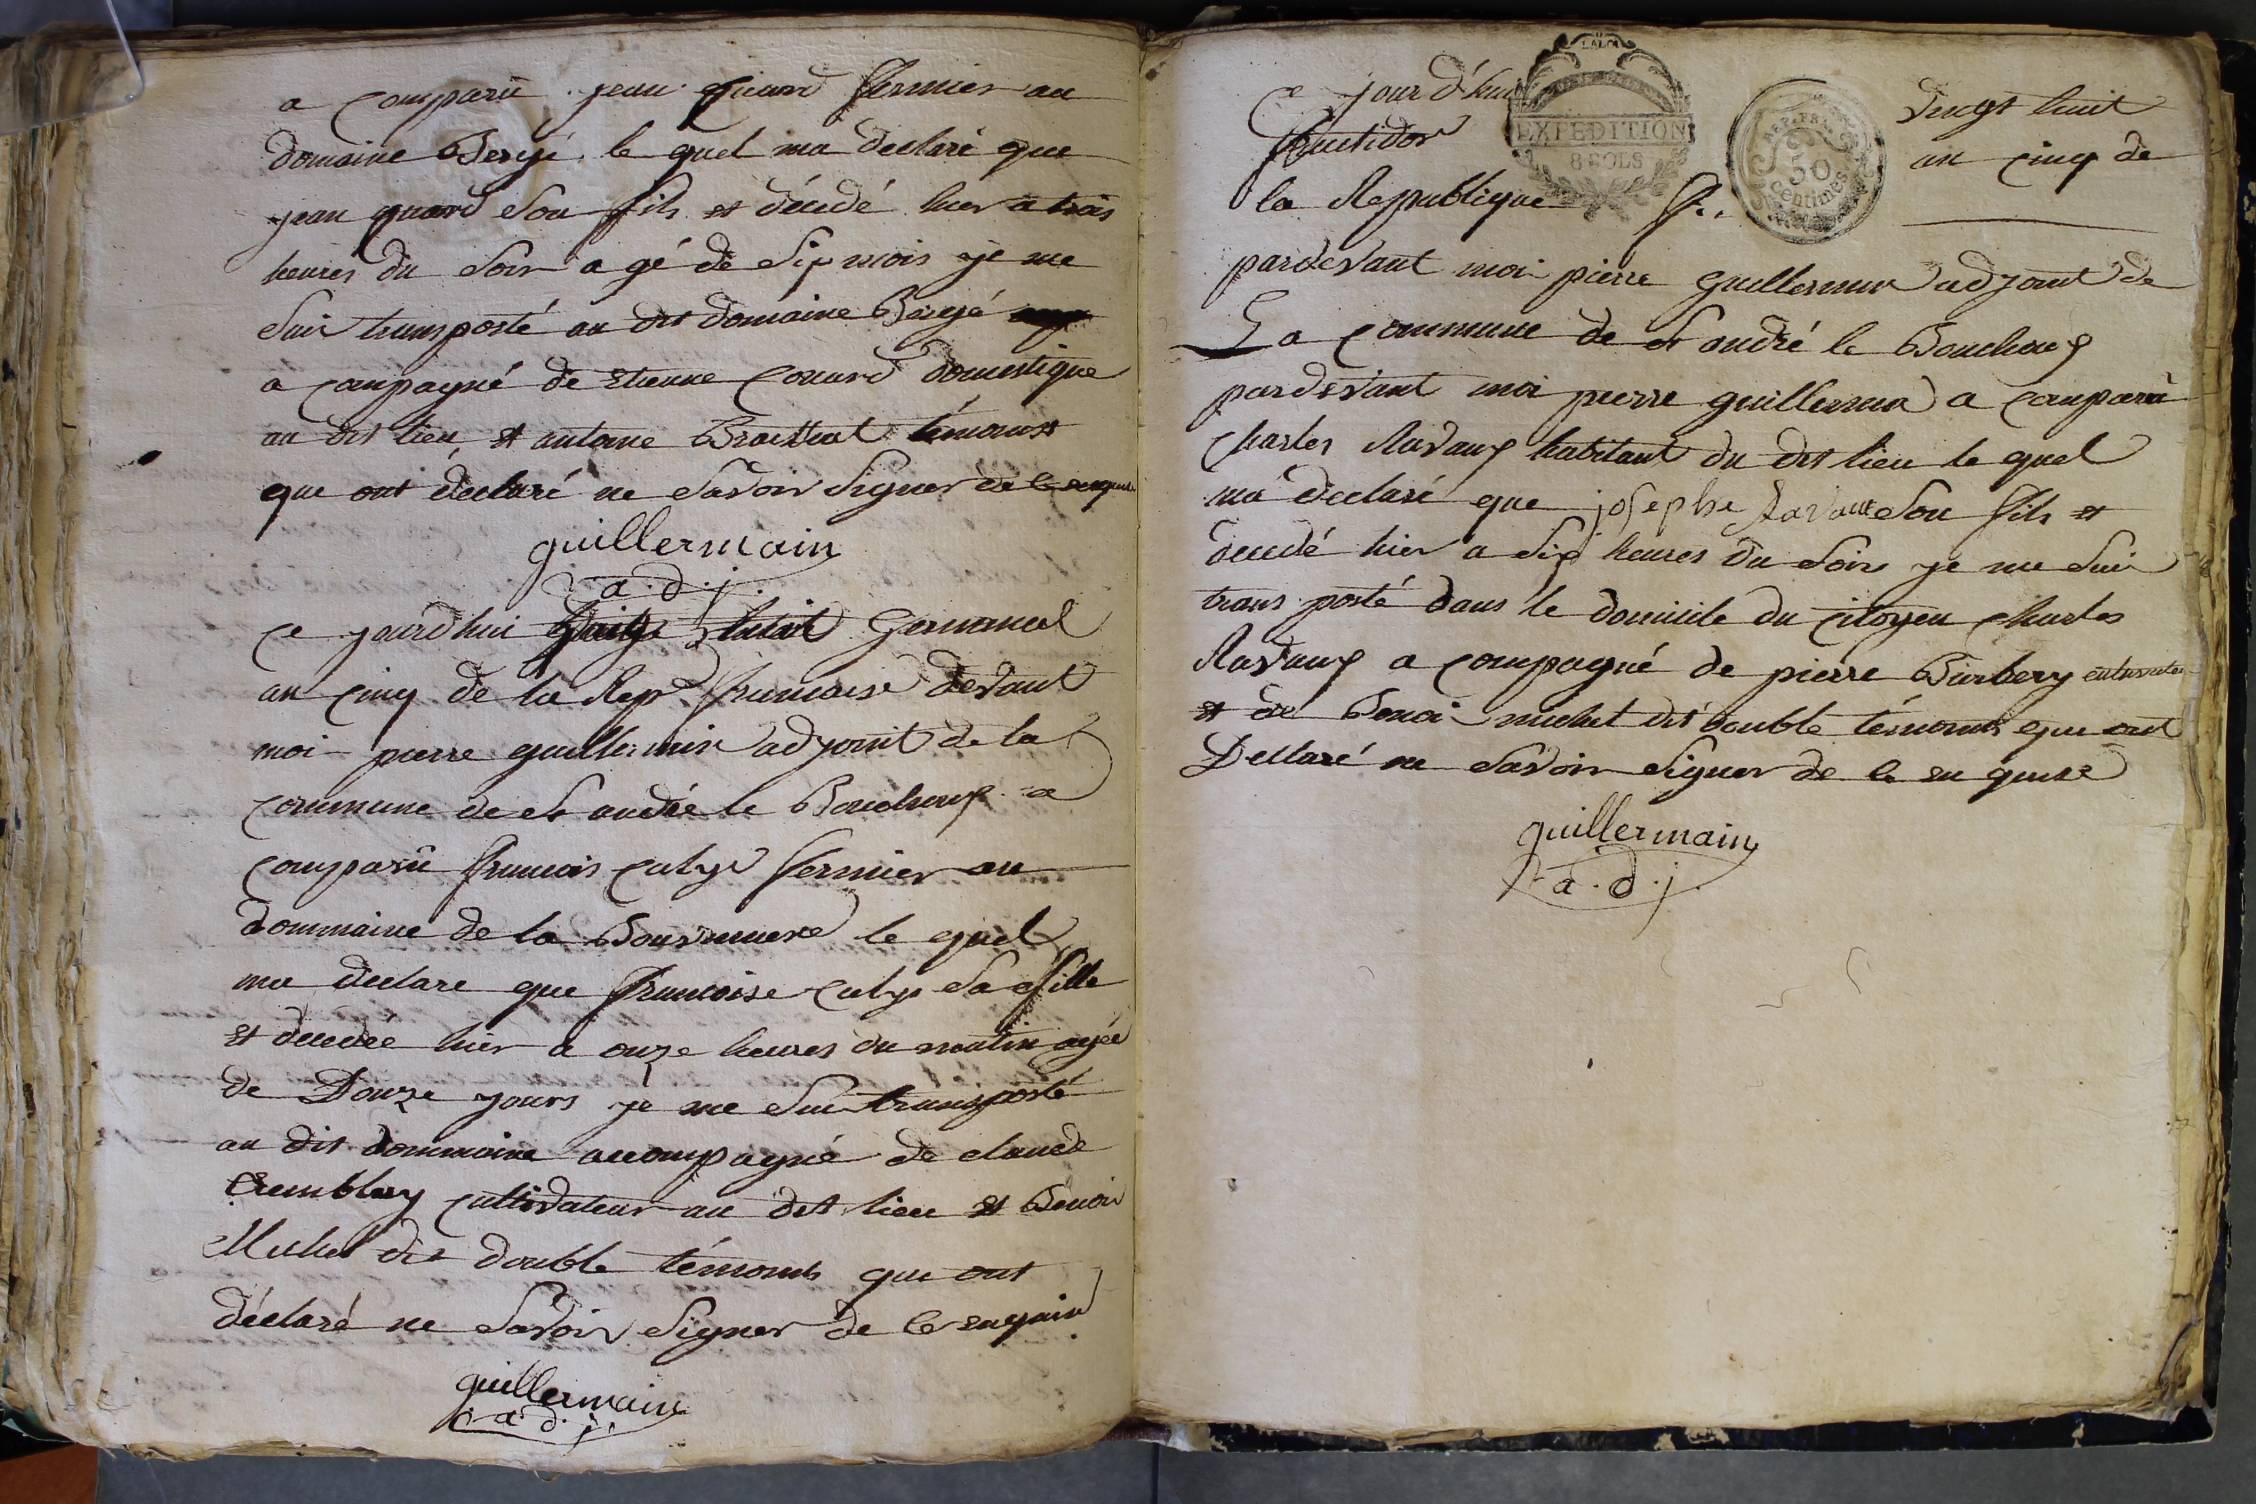 a comparû jean guiard fermier au
domaine Bergé le quel ma declaré que
jean guiard son fils et décédé hier a trois
heures du soir a gé de Six mois je me
Suis transporté au dit domaine Bergé
a compagné de Etienne Couard domestique
au dit lieu et antoine témoins
que ont déclaré ne Savoir Signer de le
guillermain
a.d.j.
Ce jourd'hui Germinal
an cinq de la Rep francoise devant
moi pierre guillermin adjoint de la
commune de St andré le Bouchoux a
comparû francois fermier au
dommaine de la le quel
ma declare que francoise Sa fille
et decedée hier a onze heures du matin agée
de Douze jours je me Sui transporté
au dit dommaine accompagné de claude
cultivateur au dit lieu et Benoi
Michel dit double témoins que ont
déclaré ne Savoir Signer de le
guillermain
a.d.j.
LA LOI
EXPEDITION
8 SOLS
REP. FRA.
50
centimes
Ce jour d'hui vingt huit
fructidor an cinq de
la Republique
pardevant moi pierre guillermin adjoint de
La commune de St andré le Bouchoux
pardevant moi pierre guillermin a comparû
Charles Ravaux habitant du dit lieu le quel
ma declaré que josephe Ravaux Son fils et
decedé hier a Six heures du Soir je me Sui
trans porté dans le domicile du citoyen charles
Ravaux a compagné de pierre cultivateur
et de Benoi michel dit double témoins que ont
Declaré ne Savoir Signer de le en quise
guillermain
a.d.j.